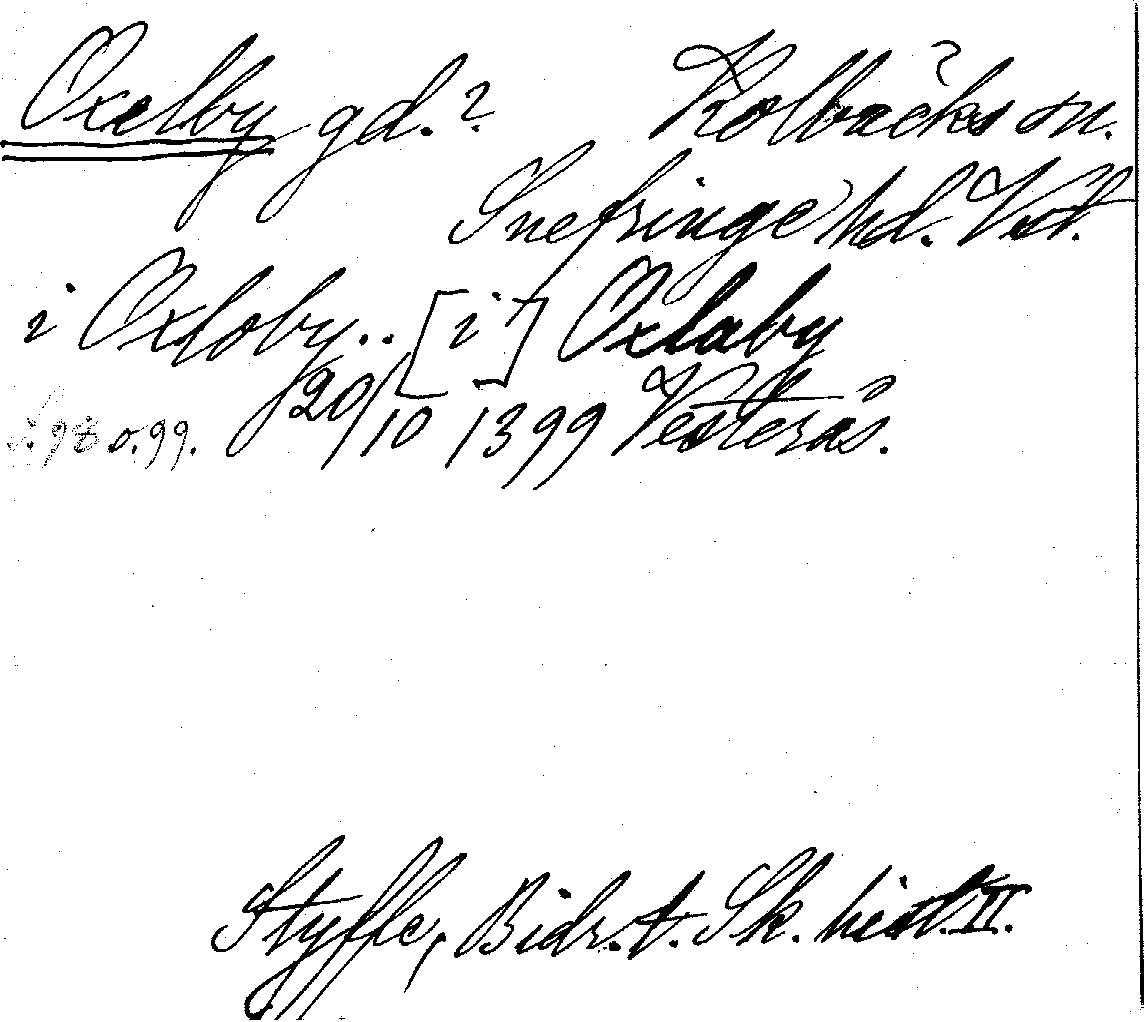 Oxelby gd.? Kolbäcks sn.
Snefringe hd. Vstl.
i Oxloby.. [i] Oxlaby
20/10 1399 Vesterås.
s. 98 o. 99.
Styffe, Bidr. t. Sk. hist. II.